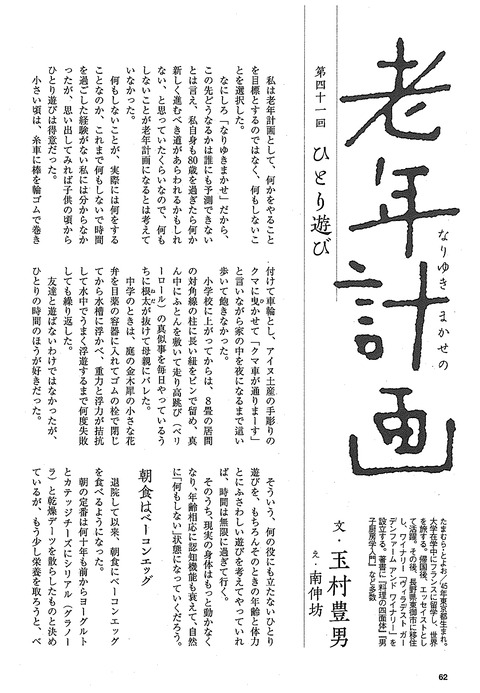 なりゆきまかせの
老年計画
第四十一回 ひとり遊び
文・玉村豊男
え・南伸坊
たまむら・とよお／'45年東京都生まれ。
大学在学中にフランスに留学し、世界
を旅する。帰国後、エッセイストとし
て活躍。その後、長野県東御市に移住
し、ワイナリー「ヴィラデスト ガー
デンファーム アンド ワイナリー」を
設立する。著書に『料理の四面体』『男
子厨房学入門』など多数
私は老年計画として、何かをやること
を目標とするのではなく、何もしないこ
とを選択した。
なにしろ「なりゆきまかせ」だから、
この先どうなるかは誰にも予測できない
とは言え、私自身も80歳を過ぎたら何か
新しく進むべき道があらわれるかもしれ
ない、と思っていたくらいなので、何も
しないことが老年計画になるとは考えて
いなかった。
何もしないことが、実際には何をする
ことなのか、これまで何もしないで時間
を過ごした経験がない私には分からなか
ったが、思い出してみれば子供の頃から
ひとり遊びは得意だった。
小さい頃は、糸車に棒を輪ゴムで巻き
付けて車輪とし、アイヌ土産の手彫りの
クマに曳かせて「クマ車が通りまーす」
と言いながら家の中を夜になるまで這い
歩いて飽きなかった。
小学校に上がってからは、8畳の居間
の対角線の柱に長い紐をピンで留め、真
ん中にふとんを敷いて走り高跳び（ベリ
ーロール）の真似事を毎日やっているう
ちに根太が抜けて母親にバレた。
中学のときは、庭の金木犀の小さな花
弁を目薬の容器に入れてゴムの栓で閉じ
てから水槽に浮かべ、重力と浮力が拮抗
して水中でうまく浮遊するまで何度失敗
しても繰り返した。
友達と遊ばないわけではなかったが、
ひとりの時間のほうが好きだった。
そういう、何の役にも立たないひとり
遊びを、もちろんそのときの年齢と体力
とにふさわしい遊びを考えてやっていれ
ば、時間は無限に過ぎて行く。
そのうち、現実の身体はもっと動かなく
なり、年齢相応に認知機能も衰えて、自然
に「何もしない」状態になっていくだろう。
朝食はベーコンエッグ
退院して以来、朝食にベーコンエッグ
を食べるようになった。
朝の定番は何十年も前からヨーグルト
とカテッジチーズにシリアル（グラノー
ラ）と乾燥デーツを散らしたものと決め
ているが、もう少し栄養を取ろうと、ベ
62